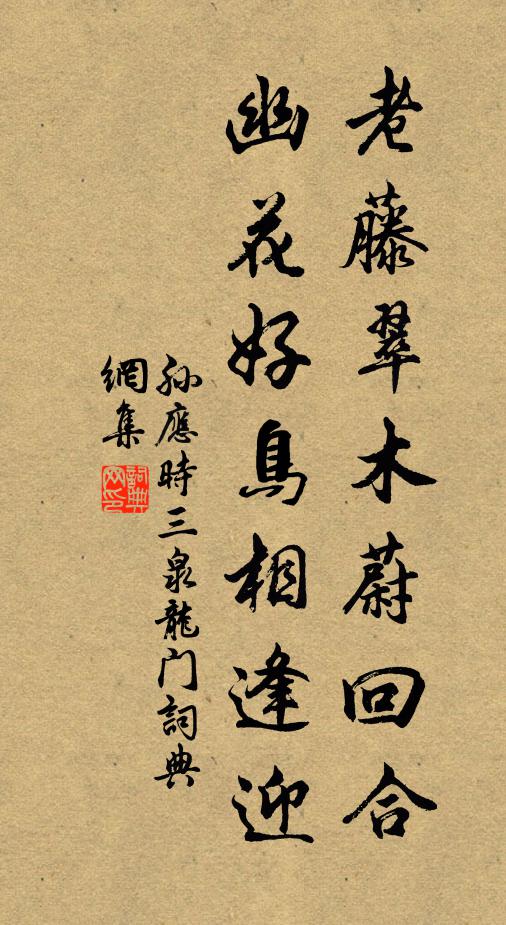 老藤翠木蔚回合
幽花好鳥相逢迎
孫應時三泉龍门詞典
網集
詞典網印